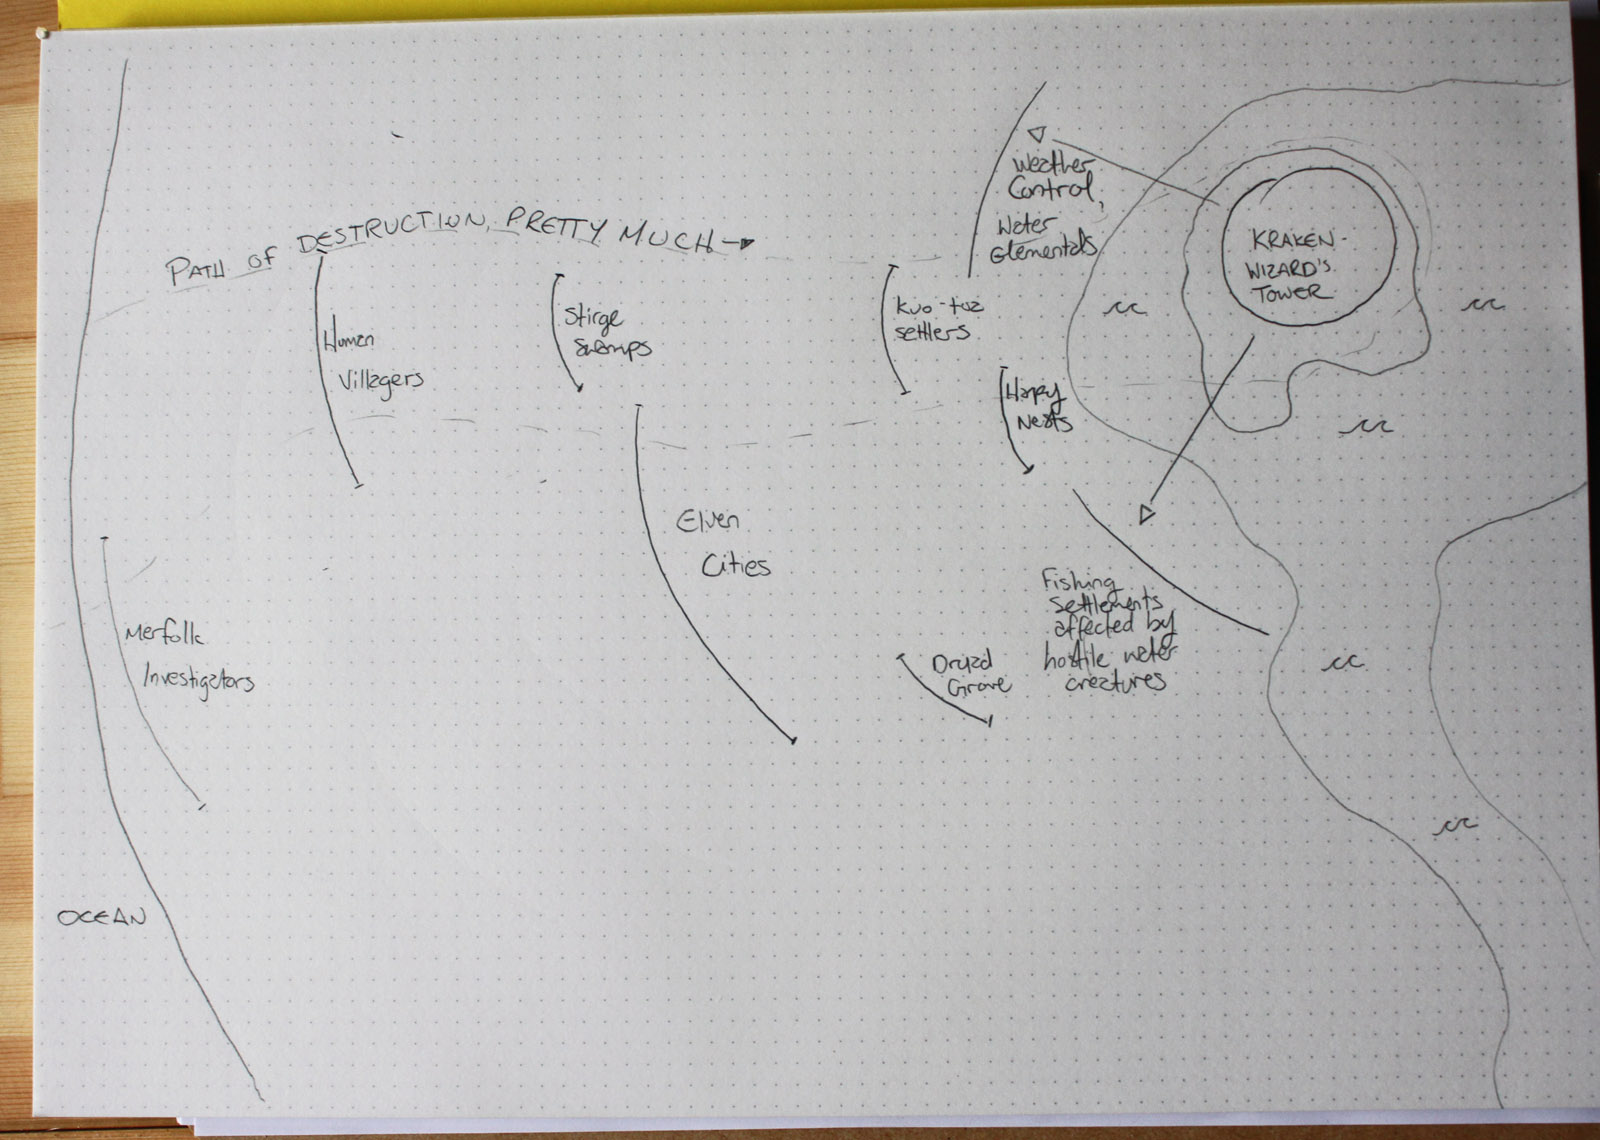 PATH OF DESTRUCTION, PRETTY MUCH
Weather
Control,
Water
Elementals
KRAKEN-
WIZARD'S
TOWER
Human
Villagers
Stirge
Swamps
Kuo-toa
settlers
Harpy
Nests
Elven
Cities
Fishing
settlements
affected by
hostile water
creatures
Merfolk
Investigators
Dryad
Grove
OCEAN